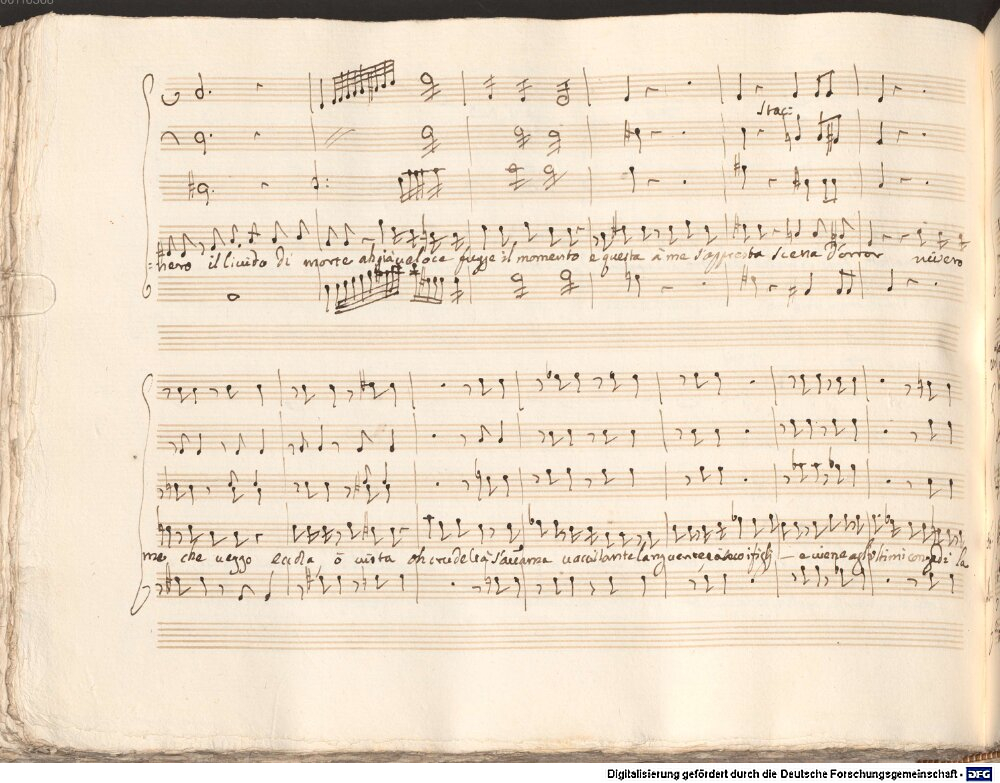 00110308
Stac:
=nero il livido di morte ahi già veloce fugge il momento e questa à me s'appresta scena d'orror misero
me che veggo eccola, ò vista oh crudeltà s'avanza vacillante languente co i figli - e viene agl'ultimi congedi la
Digitalisierung gefördert durch die Deutsche Forschungsgemeinschaft - DFG